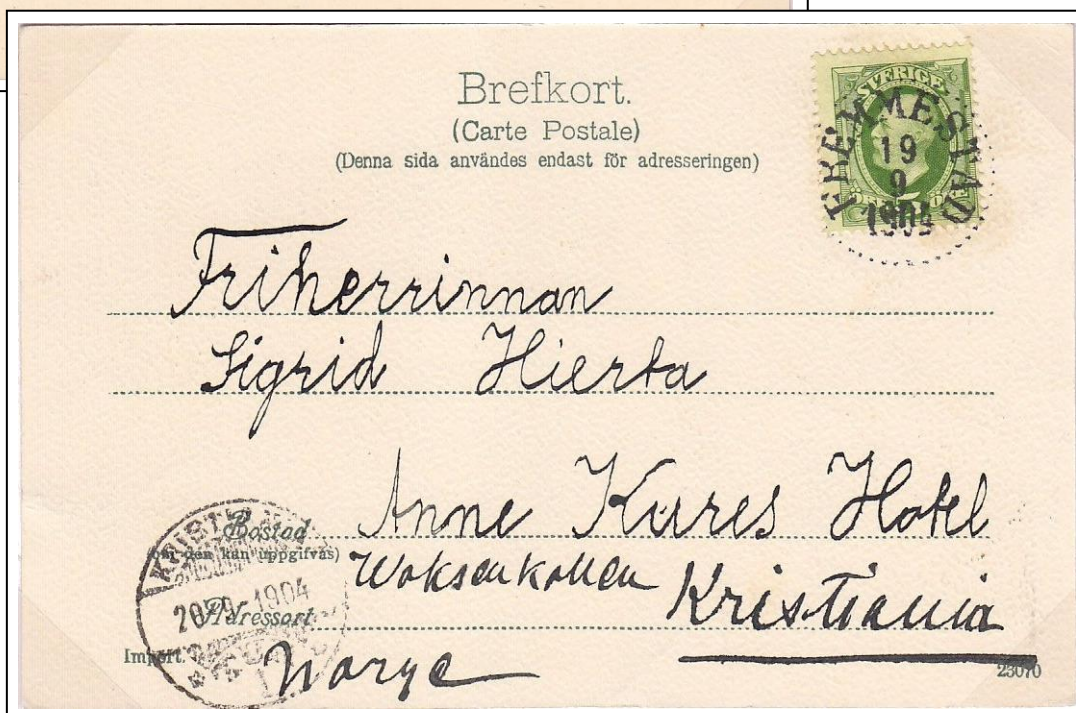 Brefkort.
(Carte Postale)
(Denna sida användes endast för adresseringen)
SVERIGE
FREMMESTAD
19
9
1904
Friherrinnan
Sigrid Hierta
Anne Kures Hotel
Woksenkollen Kristiania
Norge
Bostad
(när den kan uppgifvas)
Adressort
KRISTIANIA
20 9-1904
Import.
23070